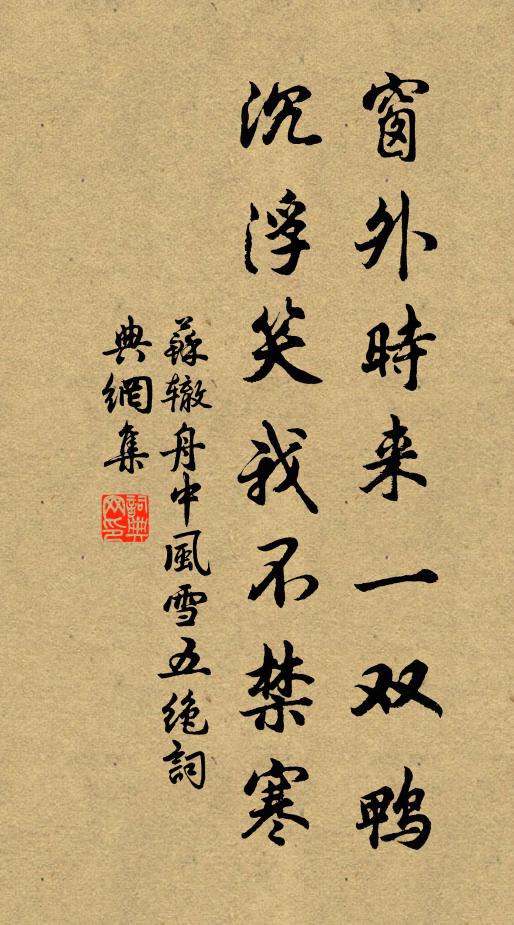 窗外時来一双鸭
沉浮笑我不禁寒
蘇辙舟中風雪五绝詞
典網集
詞典网印